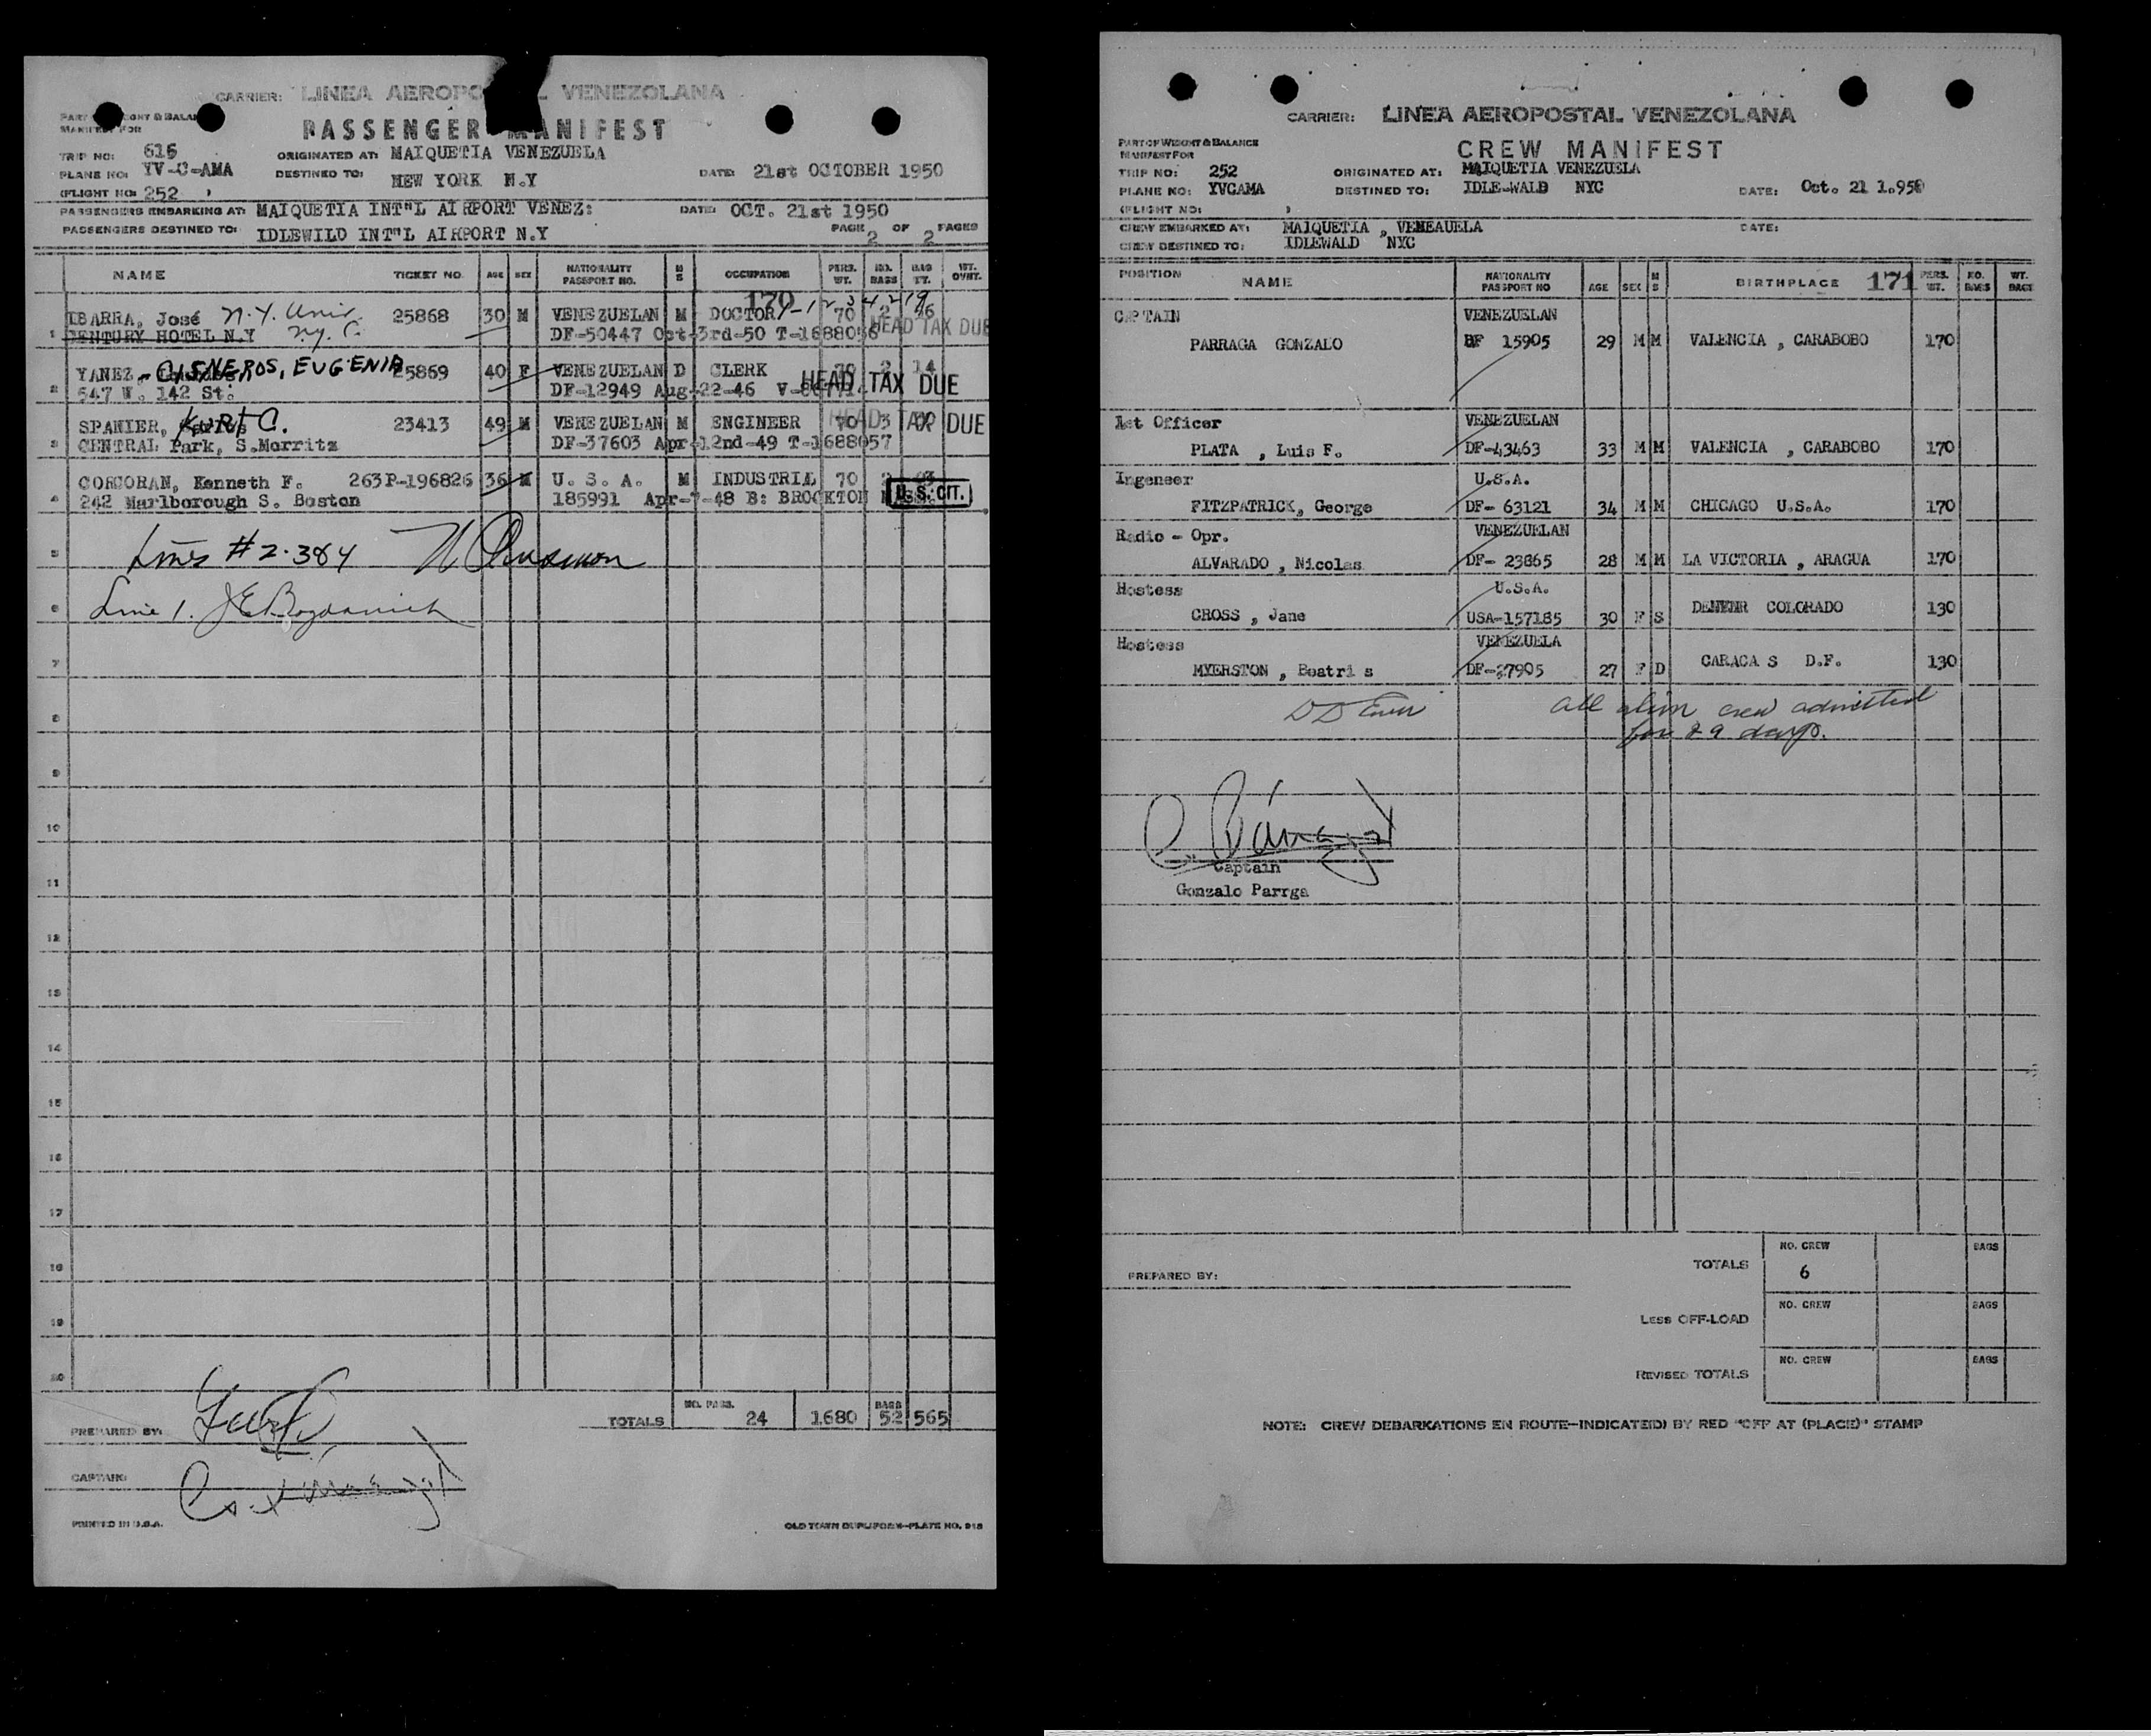 CARRIER: LINEA AEROPO L VENEZOLANA
PART WEIGHT & BALAN
MANIFEST FOR
PASSENGER MANIFEST
TRIP NO: 616 ORIGINATED AT: MAIQUETIA VENEZUELA
PLANE NO: YV-C-AMA DESTINED TO: NEW YORK N.Y DATE: 21st OCTOBER 1950
(FLIGHT NO: 252 )
PASSENGERS EMBARKING AT: MAIQUETIA INT"L AIRPORT VENEZ: DATE: OCT. 21st 1950
PASSENGERS DESTINED TO: IDLEWILD INT"L AIRPORT N.Y PAGE 2 OF 2 PAGES
NAME TICKET NO. AGE SEX NATIONALITY PASSPORT NO. M S OCCUPATION PERS. WT. NO. BAGS BAG WT. WT. OVWT.
170
1 IBARRA, José N.Y. Univ. 25868 30 M VENEZUELAN M DOCTOR 70 2 16
CENTURY HOTEL N.Y N.Y.C. DF-50447 Oct-3rd-50 T-1688056 HEAD TAX DUE
2 YANEZ - CISNEROS, EUGENIA 25869 40 F VENEZUELAN D CLERK 70 2 14
547 W. 142 St. DF-12949 Aug-22-46 HEAD TAX DUE
3 SPANIER, Kurt C. 23413 49 M VENEZUELAN M ENGINEER 70 3 HEAD TAX DUE
CENTRAL Park, S.Morritz DF-37603 Apr-12nd-49 T-1688057
4 CORCORAN, Kenneth F. 263P-196826 36 M U. S. A. M INDUSTRIAL 70 2
242 Marlborough S. Boston 185991 Apr-7-48 B: BROCKTON U.S. CIT.
5 Lines #2-3&4
6 Line 1. J E Bogdanich
7
8
9
10
11
12
13
14
15
16
17
18
19
20
TOTALS NO. PASS. 24 1680 BAGS 52 565
PREPARED BY:
CAPTAIN:
PRINTED IN U.S.A. OLD TOWN DUPLIFORM—PLATE NO. 918
CARRIER: LINEA AEROPOSTAL VENEZOLANA
PART OF WEIGHT & BALANCE
MANIFEST FOR
CREW MANIFEST
TRIP NO: 252 ORIGINATED AT: MAIQUETIA VENEZUELA
PLANE NO: YVCAMA DESTINED TO: IDLE-WALD NYC DATE: Oct. 21 1.950
(FLIGHT NO: )
CREW EMBARKED AT: MAIQUETIA , VENEAUELA DATE:
CREW DESTINED TO: IDLEWALD NYC
POSITION NAME NATIONALITY PASSPORT NO AGE SEX M S BIRTHPLACE 171 PERS. WT. NO. BAGS WT. BAGS
CAPTAIN VENEZUELAN
PARRAGA GONZALO 15905 29 M M VALENCIA , CARABOBO 170
1st Officer VENEZUELAN
PLATA , Luis F. DF-43463 33 M M VALENCIA , CARABOBO 170
Ingeneer U.S.A.
FITZPATRICK, George DF- 63121 34 M M CHICAGO U.S.A. 170
Radio - Opr. VENEZUELAN
ALVARADO , Nicolas DF- 23865 28 M M LA VICTORIA , ARAGUA 170
Hostess U.S.A.
CROSS , Jane USA-157185 30 F S COLORADO 130
Hostess VENEZUELA
MYERSTON , Beatri s DF-27905 27 F D CARACA S D.F. 130
All alien crew admitted
for 29 days.
Captain
Gonzalo Parrga
TOTALS NO. CREW 6 BAGS
PREPARED BY:
Less OFF-LOAD NO. CREW BAGS
REVISED TOTALS NO. CREW BAGS
NOTE: CREW DEBARKATIONS EN ROUTE—INDICATE(D) BY RED "OFF AT (PLACE)" STAMP